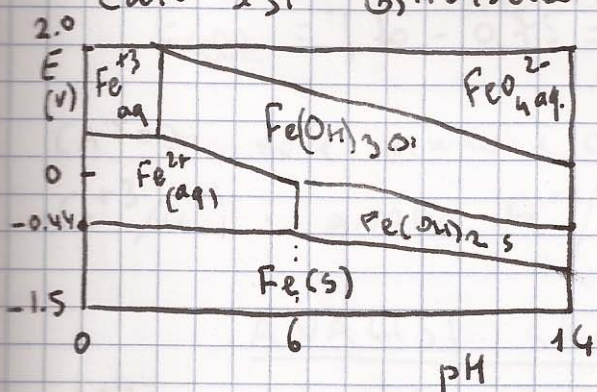 2.0
E
(v)
Fe+3
aq
FeO4 2-
aq.
Fe(OH)3
0
Fe2+
(aq)
-0.44
Fe(OH)2 s
Fe(s)
-1.5
0
6
14
pH